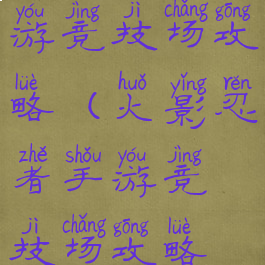 yóu jìng jì chǎng gōng
游竞技场攻
lüè huǒ yǐng rěn
略（火影忍
zhě shǒu yóu jìng
者手游竞
jì chǎng gōng lüè
技场攻略